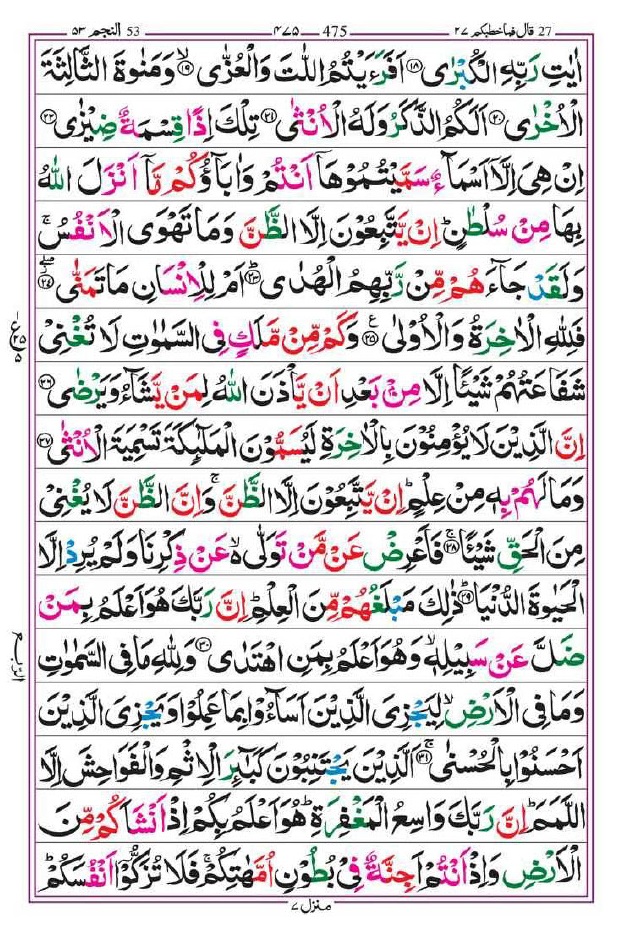 27 قال فماخطبكم ٢٧ 475 ٤٧٥ 53 النجم ٥٣
اٰيٰتِ رَبِّهِ الْكُبْرٰى ⑱ اَفَرَءَيْتُمُ اللّٰتَ وَالْعُزّٰى ⑲ۙ وَمَنٰوةَ الثَّالِثَةَ
الْاُخْرٰى ⑳ اَلَكُمُ الذَّكَرُ وَلَهُ الْاُنْثٰى ㉑ تِلْكَ اِذًا قِسْمَةٌ ضِيْزٰى ㉒
اِنْ هِىَ اِلَّاۤ اَسْمَآءٌ سَمَّيْتُمُوْهَاۤ اَنْتُمْ وَاٰبَآؤُكُمْ مَّاۤ اَنْزَلَ اللّٰهُ
بِهَا مِنْ سُلْطٰنٍؕ اِنْ يَّتَّبِعُوْنَ اِلَّا الظَّنَّ وَمَا تَهْوَى الْاَنْفُسُۚ
وَلَقَدْ جَآءَهُمْ مِّنْ رَّبِّهِمُ الْهُدٰىؕ ㉓ اَمْ لِلْاِنْسَانِ مَا تَمَنّٰىۖ ㉔
فَلِلّٰهِ الْاٰخِرَةُ وَالْاُوْلٰى ㉕ وَكَمْ مِّنْ مَّلَكٍ فِى السَّمٰوٰتِ لَا تُغْنِىْ
شَفَاعَتُهُمْ شَيْـًٔا اِلَّا مِنْۢ بَعْدِ اَنْ يَّاْذَنَ اللّٰهُ لِمَنْ يَّشَآءُ وَيَرْضٰى ㉖
اِنَّ الَّذِيْنَ لَا يُؤْمِنُوْنَ بِالْاٰخِرَةِ لَيُسَمُّوْنَ الْمَلٰٓئِكَةَ تَسْمِيَةَ الْاُنْثٰى ㉗
وَمَا لَهُمْ بِهٖ مِنْ عِلْمٍؕ اِنْ يَّتَّبِعُوْنَ اِلَّا الظَّنَّۚ وَاِنَّ الظَّنَّ لَا يُغْنِىْ
مِنَ الْحَقِّ شَيْـًٔاۚ ㉘ فَاَعْرِضْ عَنْ مَّنْ تَوَلّٰى ۙ عَنْ ذِكْرِنَا وَلَمْ يُرِدْ اِلَّا
الْحَيٰوةَ الدُّنْيَاؕ ㉙ ذٰلِكَ مَبْلَغُهُمْ مِّنَ الْعِلْمِؕ اِنَّ رَبَّكَ هُوَ اَعْلَمُ بِمَنْ
ضَلَّ عَنْ سَبِيْلِهٖۙ وَهُوَ اَعْلَمُ بِمَنِ اهْتَدٰى ㉚ وَلِلّٰهِ مَا فِى السَّمٰوٰتِ
وَمَا فِى الْاَرْضِۙ لِيَجْزِىَ الَّذِيْنَ اَسَآءُوْا بِمَا عَمِلُوْا وَيَجْزِىَ الَّذِيْنَ
اَحْسَنُوْا بِالْحُسْنٰىۚ ㉛ اَلَّذِيْنَ يَجْتَنِبُوْنَ كَبٰٓئِرَ الْاِثْمِ وَالْفَوَاحِشَ اِلَّا
اللَّمَمَؕ اِنَّ رَبَّكَ وَاسِعُ الْمَغْفِرَةِؕ هُوَ اَعْلَمُ بِكُمْ اِذْ اَنْشَاَكُمْ مِّنَ
الْاَرْضِ وَاِذْ اَنْتُمْ اَجِنَّةٌ فِىْ بُطُوْنِ اُمَّهٰتِكُمْۚ فَلَا تُزَكُّوْۤا اَنْفُسَكُمْؕ
منزل ٧